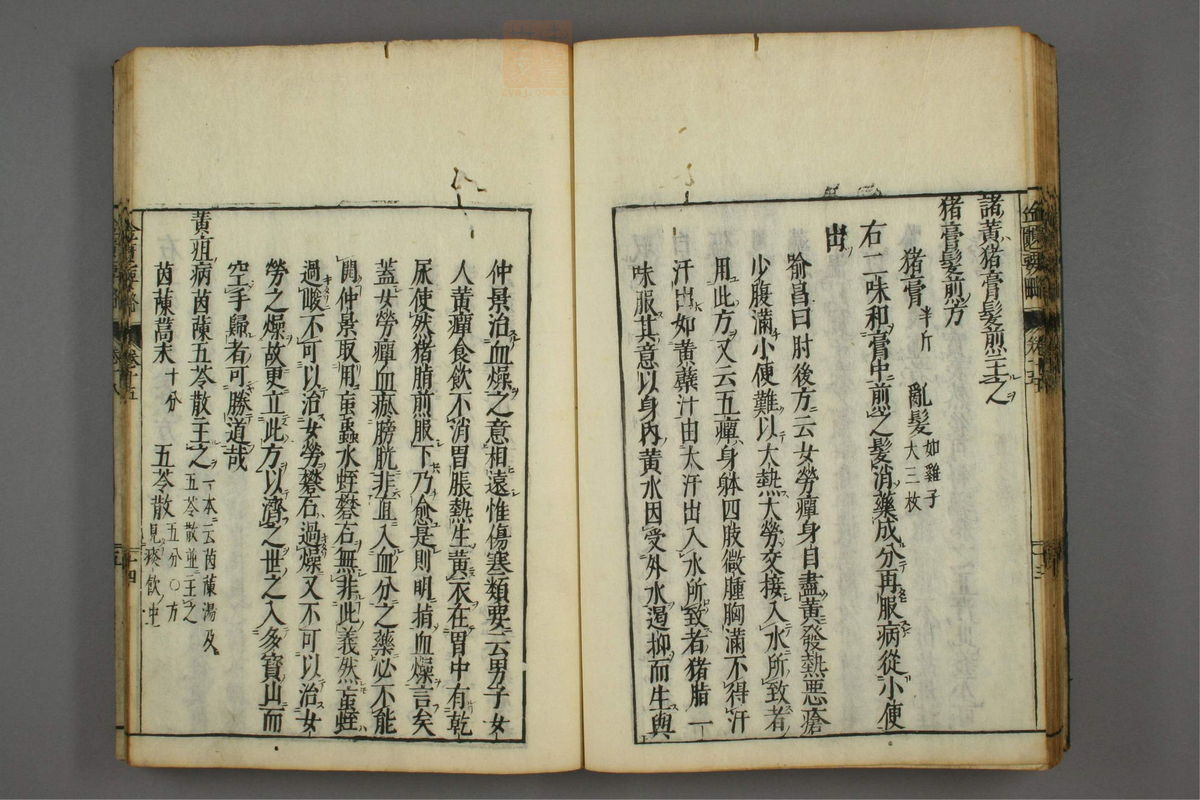 諸黄猪膏髮煎主之
猪膏髮煎方
猪膏半斤 亂髮如雞子大三枚
右二味和膏中煎之髮消藥成分再服病從小便
出
喻昌曰肘後方云女勞癉身目盡黄發熱惡瘡
少腹滿小便難以大熱大勞交接入水所致者
用此方又云五癉身躰四肢微腫胸滿不得汗
汗出如黄蘗汁由太汗出入水所致者猪脂一
味服其意以身内黄水因受外水遏抑而生與
仲景治血燥之意相遠惟傷寒類要云男子女
人黄癉食飲不消胃脹熱生黄衣在胃中有乾
屎使然猪脂煎服下乃愈是則明指血燥言矣
蓋女勞癉血瘀膀胱非直入血分之藥必不能
開仲景取用䖟蟲水蛭礬石無非此義然䖟蛭
過峻不可以治女勞礬石過燥又不可以治女
勞之燥故更立此方以濟之世之入多寳山而
空手歸者可勝道哉
黄疸病茵蔯五苓散主之一本云茵蔯湯及五苓散並主之
茵蔯蒿末十分 五苓散五分〇方見痰飲中